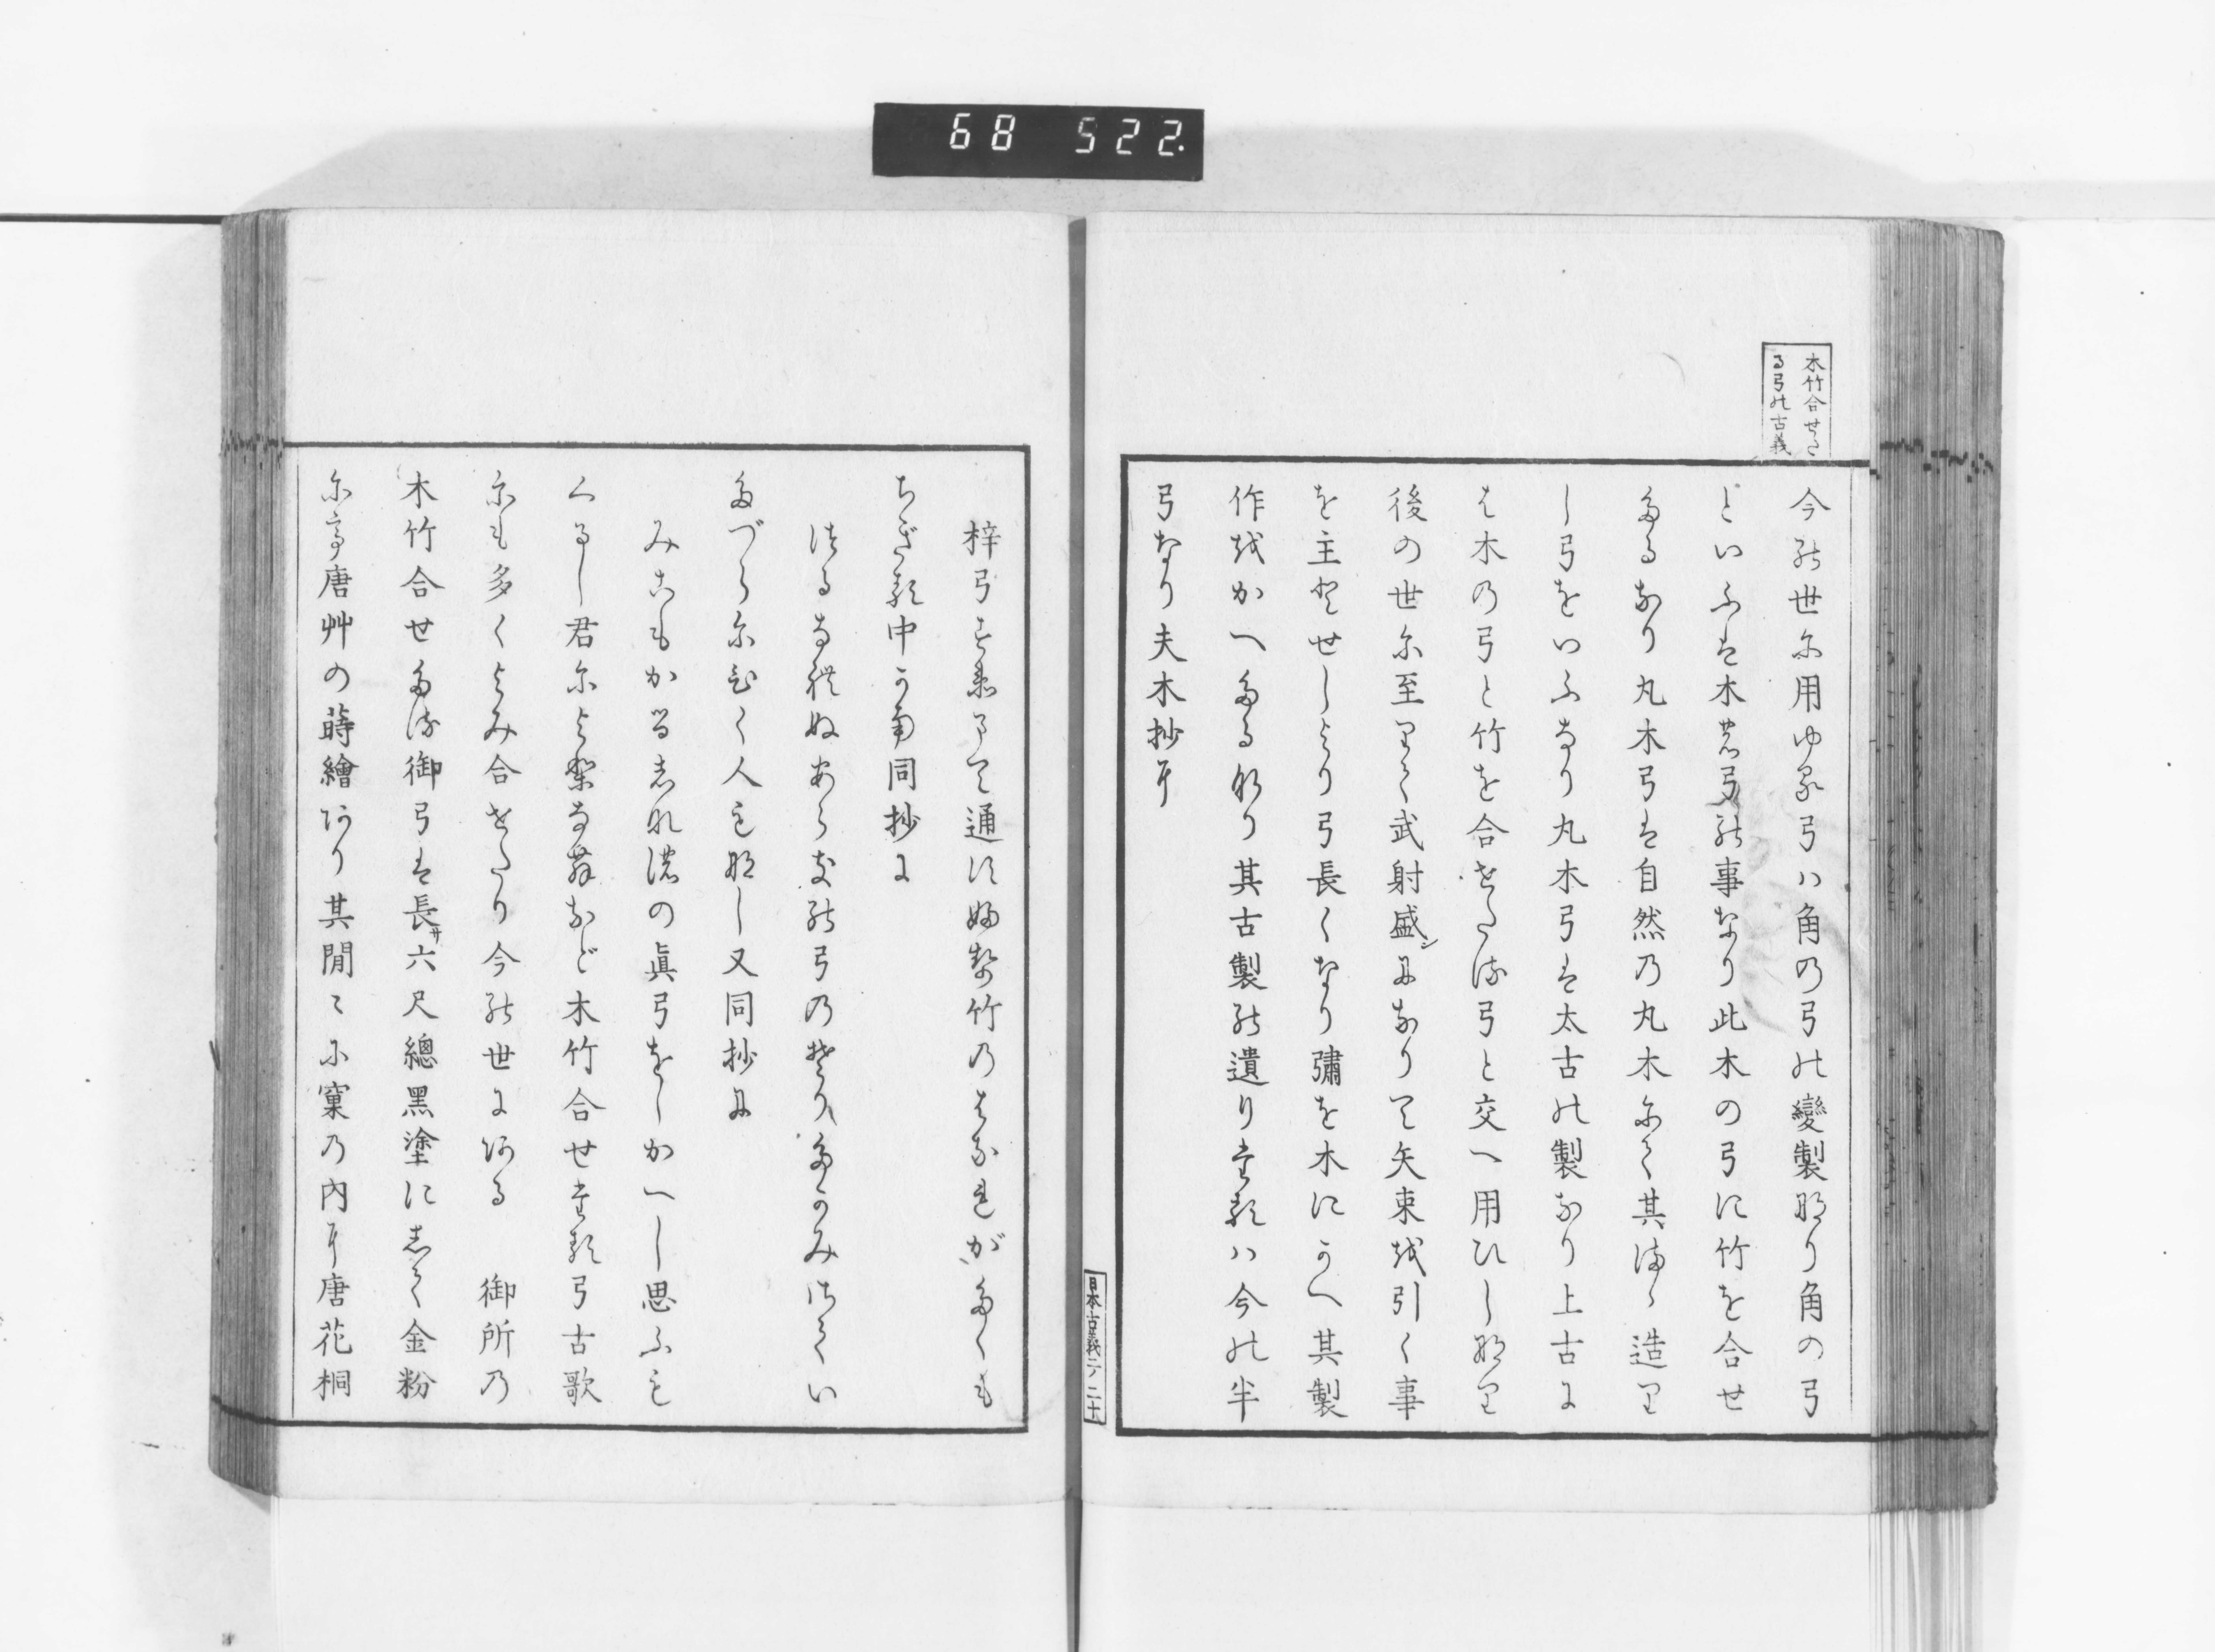 68 522.
木竹合せた
る弓の古義
今の世に用ゆる弓ハ角乃弓の變製なり角の弓
といふは木の弓の事なり此木の弓に竹を合せ
たるなり丸木弓は自然乃丸木にて其侭造り
し弓をいふなり丸木弓は太古の製なり上古に
は木乃弓と竹を合せたる弓と交へ用ひしなり
後の世に至りて武射盛ンになりて矢束を引く事
を主とせしより弓長くなり彌を木にかへ其製
作をかへたるなり其古製の遺りたるハ今の半
弓なり夫木抄に
日本古義二ノ二十
梓弓すゑまて通にふせ竹のはなれがたくも
ちぎる中かな同抄に
はるなれぬあら木の弓乃そりたかみはてい
たづらにひく人もなし又同抄に
みこもかるしなのの眞弓をしかへし思ふも
くるし君によりなはなど木竹合せたる弓古歌
にも多くよみ合せたり今の世にある 御所乃
木竹合せたる御弓は長サ六尺總黑塗にして金粉
にて唐艸の蒔繪あり其間〻に窠乃内に唐花桐